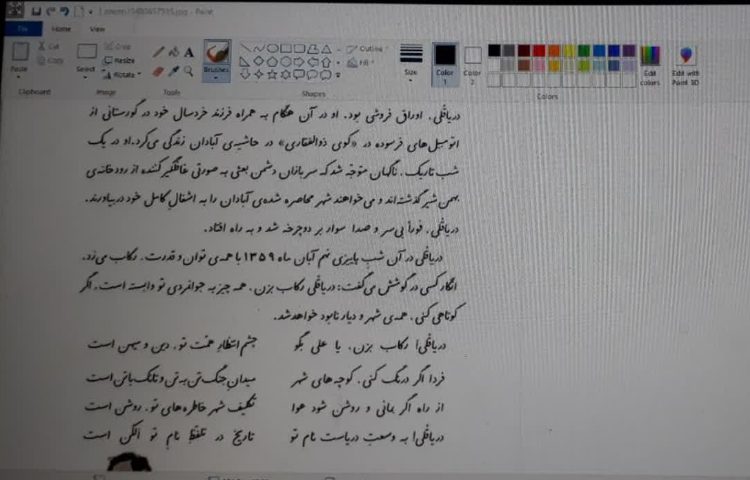 1_steem10480657935.jpg - Paint
File
Home
View
Cut
Copy
Paste
Clipboard
Select
Crop
Resize
Rotate
Image
Tools
Brushes
Outline
Fill
Shapes
Size
Color 1
Color 2
Edit colors
Edit with Paint 3D
Colors
دریاقلی، اوراق فروشی بود. او در آن هنگام به همراه فرزند خردسال خود در گورستانی از
اتومبیل‌های فرسوده در «کوی ذوالفقاری» در حاشیه‌ی آبادان زندگی می‌کرد. او در یک
شب تاریک، ناگهان متوجّه شد که سربازان دشمن بعثی به صورتی غافلگیرکننده از رودخانه‌ی
بهمن شیر گذشته‌اند و می‌خواهند شهر محاصره شده‌ی آبادان را به اشغال کامل خود دربیاورند.
دریاقلی، فوراً بی‌سر و صدا سوار بر دوچرخه شد و به راه افتاد.
دریاقلی در آن شب پاییزی نهم آبان ماه ۱۳۵۹ با همه‌ی توان و قدرت، رکاب می‌زد.
انگار کسی در گوشش می‌گفت: دریاقلی رکاب بزن، همه چیز به جوانمردی تو وابسته است، اگر
کوتاهی کنی، همه‌ی شهر و دیار نابود خواهد شد.
دریاقلی! رکاب بزن، یا علی بگو چشم انتظارِ همّت تو، دین و میهن است
فردا اگر درنگ کنی، کوچه‌های شهر میدان جنگ تن به تن و تانک با تن است
از راه اگر بمانی و روشن شود هوا تکلیف شهر خاطره‌های تو، روشن است
دریاقلی! به وسعت دریاست نام تو تاریخ در تلفّظِ نامِ تو الکن است